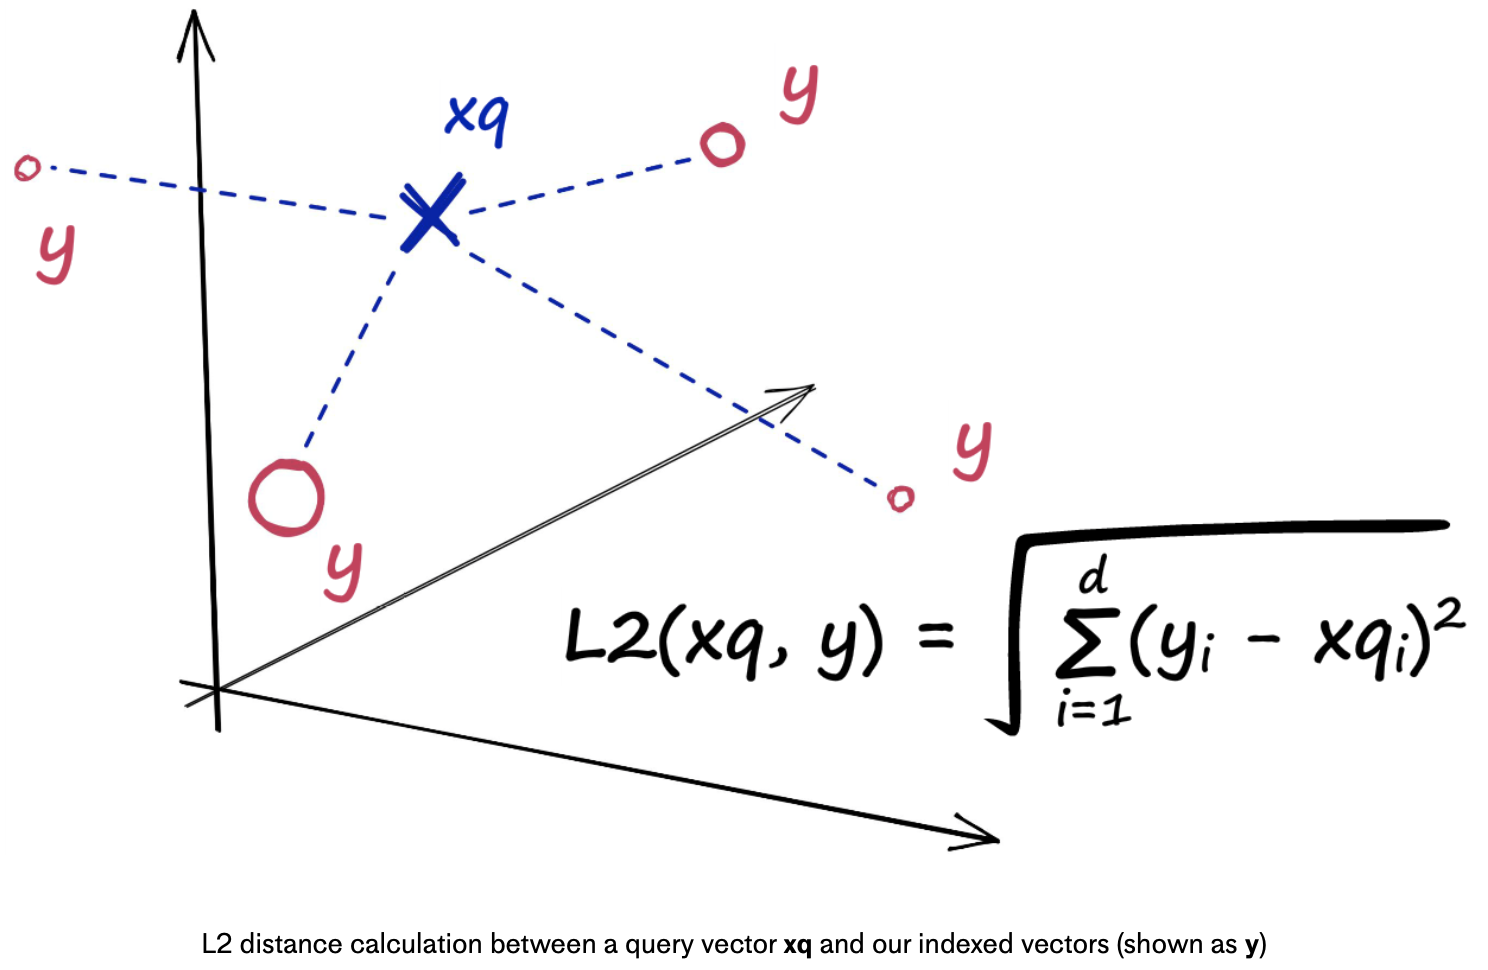 xq
y
y
y
y
L2(xq, y) = √∑(yᵢ - xqᵢ)²
d
i=1
L2 distance calculation between a query vector xq and our indexed vectors (shown as y)